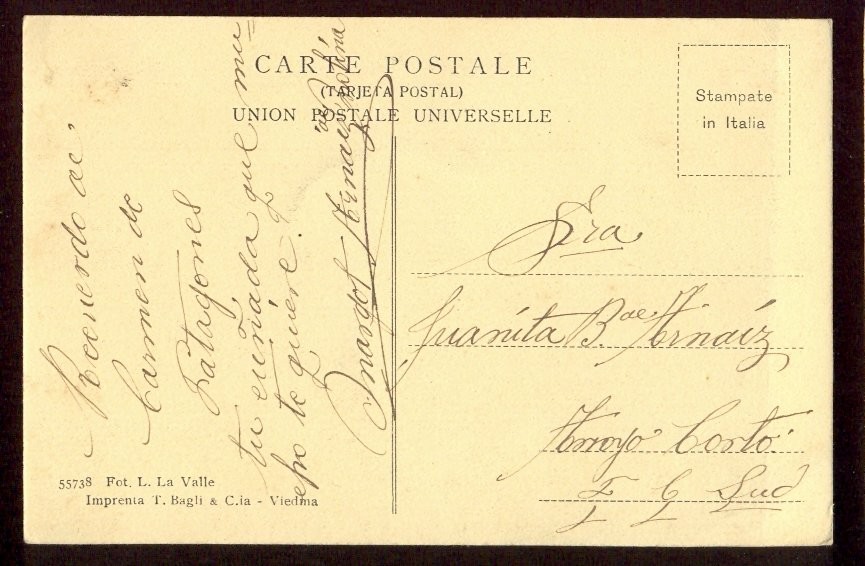 CARTE POSTALE
(TARJETA POSTAL)
UNION POSTALE UNIVERSELLE
Stampate
in Italia
Recuerdo de
Carmen de
Patagones
tu cuñada que mu=
cho te quiere.
Margot Arnaiz de Molina
Sra
Juanita B. de Arnaíz
Arroyo Corto.
F C Sud
55738 Fot. L. La Valle
Imprenta T. Bagli & C.ia - Viedma